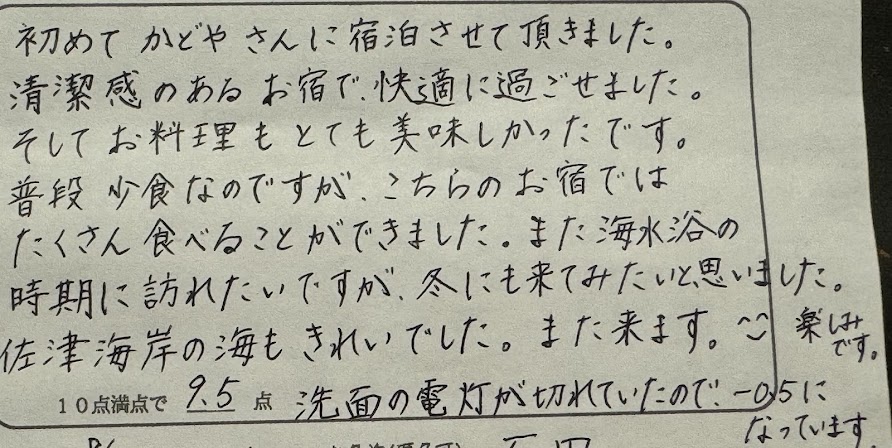 初めて かどや さんに 宿泊させて頂きました。
清潔感のある お宿で、快適に過ごせました。
そしてお料理もとても美味しかったです。
普段 少食なのですが、こちらのお宿では
たくさん食べることができました。また海水浴の
時期に訪れたいですが、冬にも来てみたいと思いました。
佐津海岸の海もきれいでした。また来ます。 楽しみ
です。
10点満点で 9.5 点 洗面の電灯が切れていたので、-0.5に
なっています。